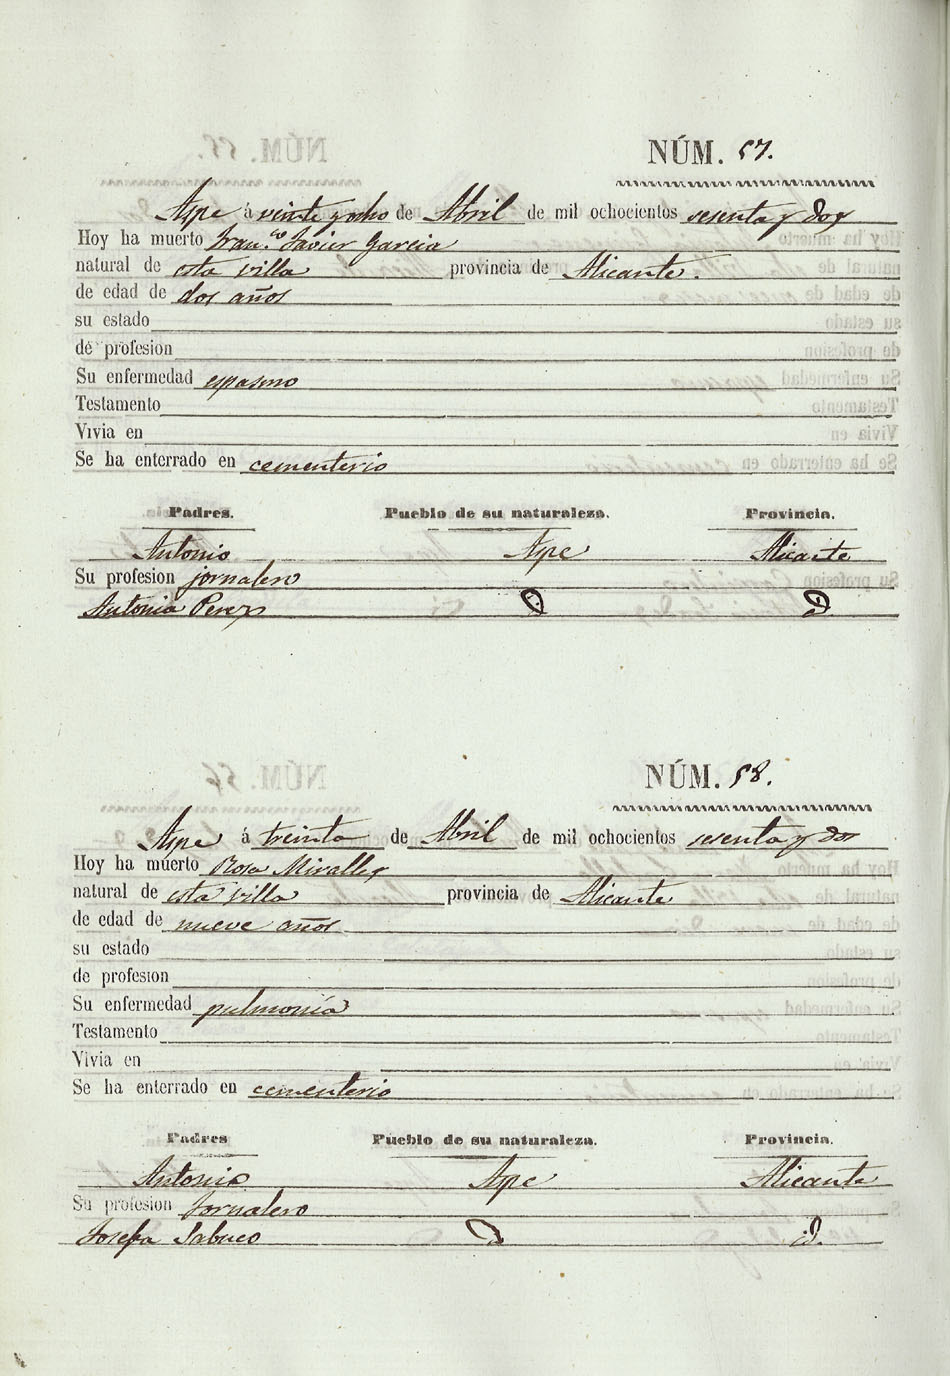 NÚM. 57.
Aspe á veinte y ocho de Abril de mil ochocientos sesenta y dos
Hoy ha muerto Fran.co Javier Garcia
natural de esta villa provincia de Alicante.
de edad de dos años
su estado
de profesion
Su enfermedad espasmo
Testamento
Vivia en
Se ha enterrado en cementerio
Padres. Pueblo de su naturaleza. Provincia.
Antonio Aspe Alicante
Su profesion jornalero
Antonia Perez
NÚM. 58.
Aspe á treinta de Abril de mil ochocientos sesenta y dos
Hoy ha muerto Rosa Miralles
natural de esta villa provincia de Alicante
de edad de nueve años
su estado
de profesion
Su enfermedad pulmonía
Testamento
Vivia en
Se ha enterrado en cementerio
Padres Pueblo de su naturaleza. Provincia.
Antonio Aspe Alicante
Su profesion Jornalero
Josefa Sabuco id.